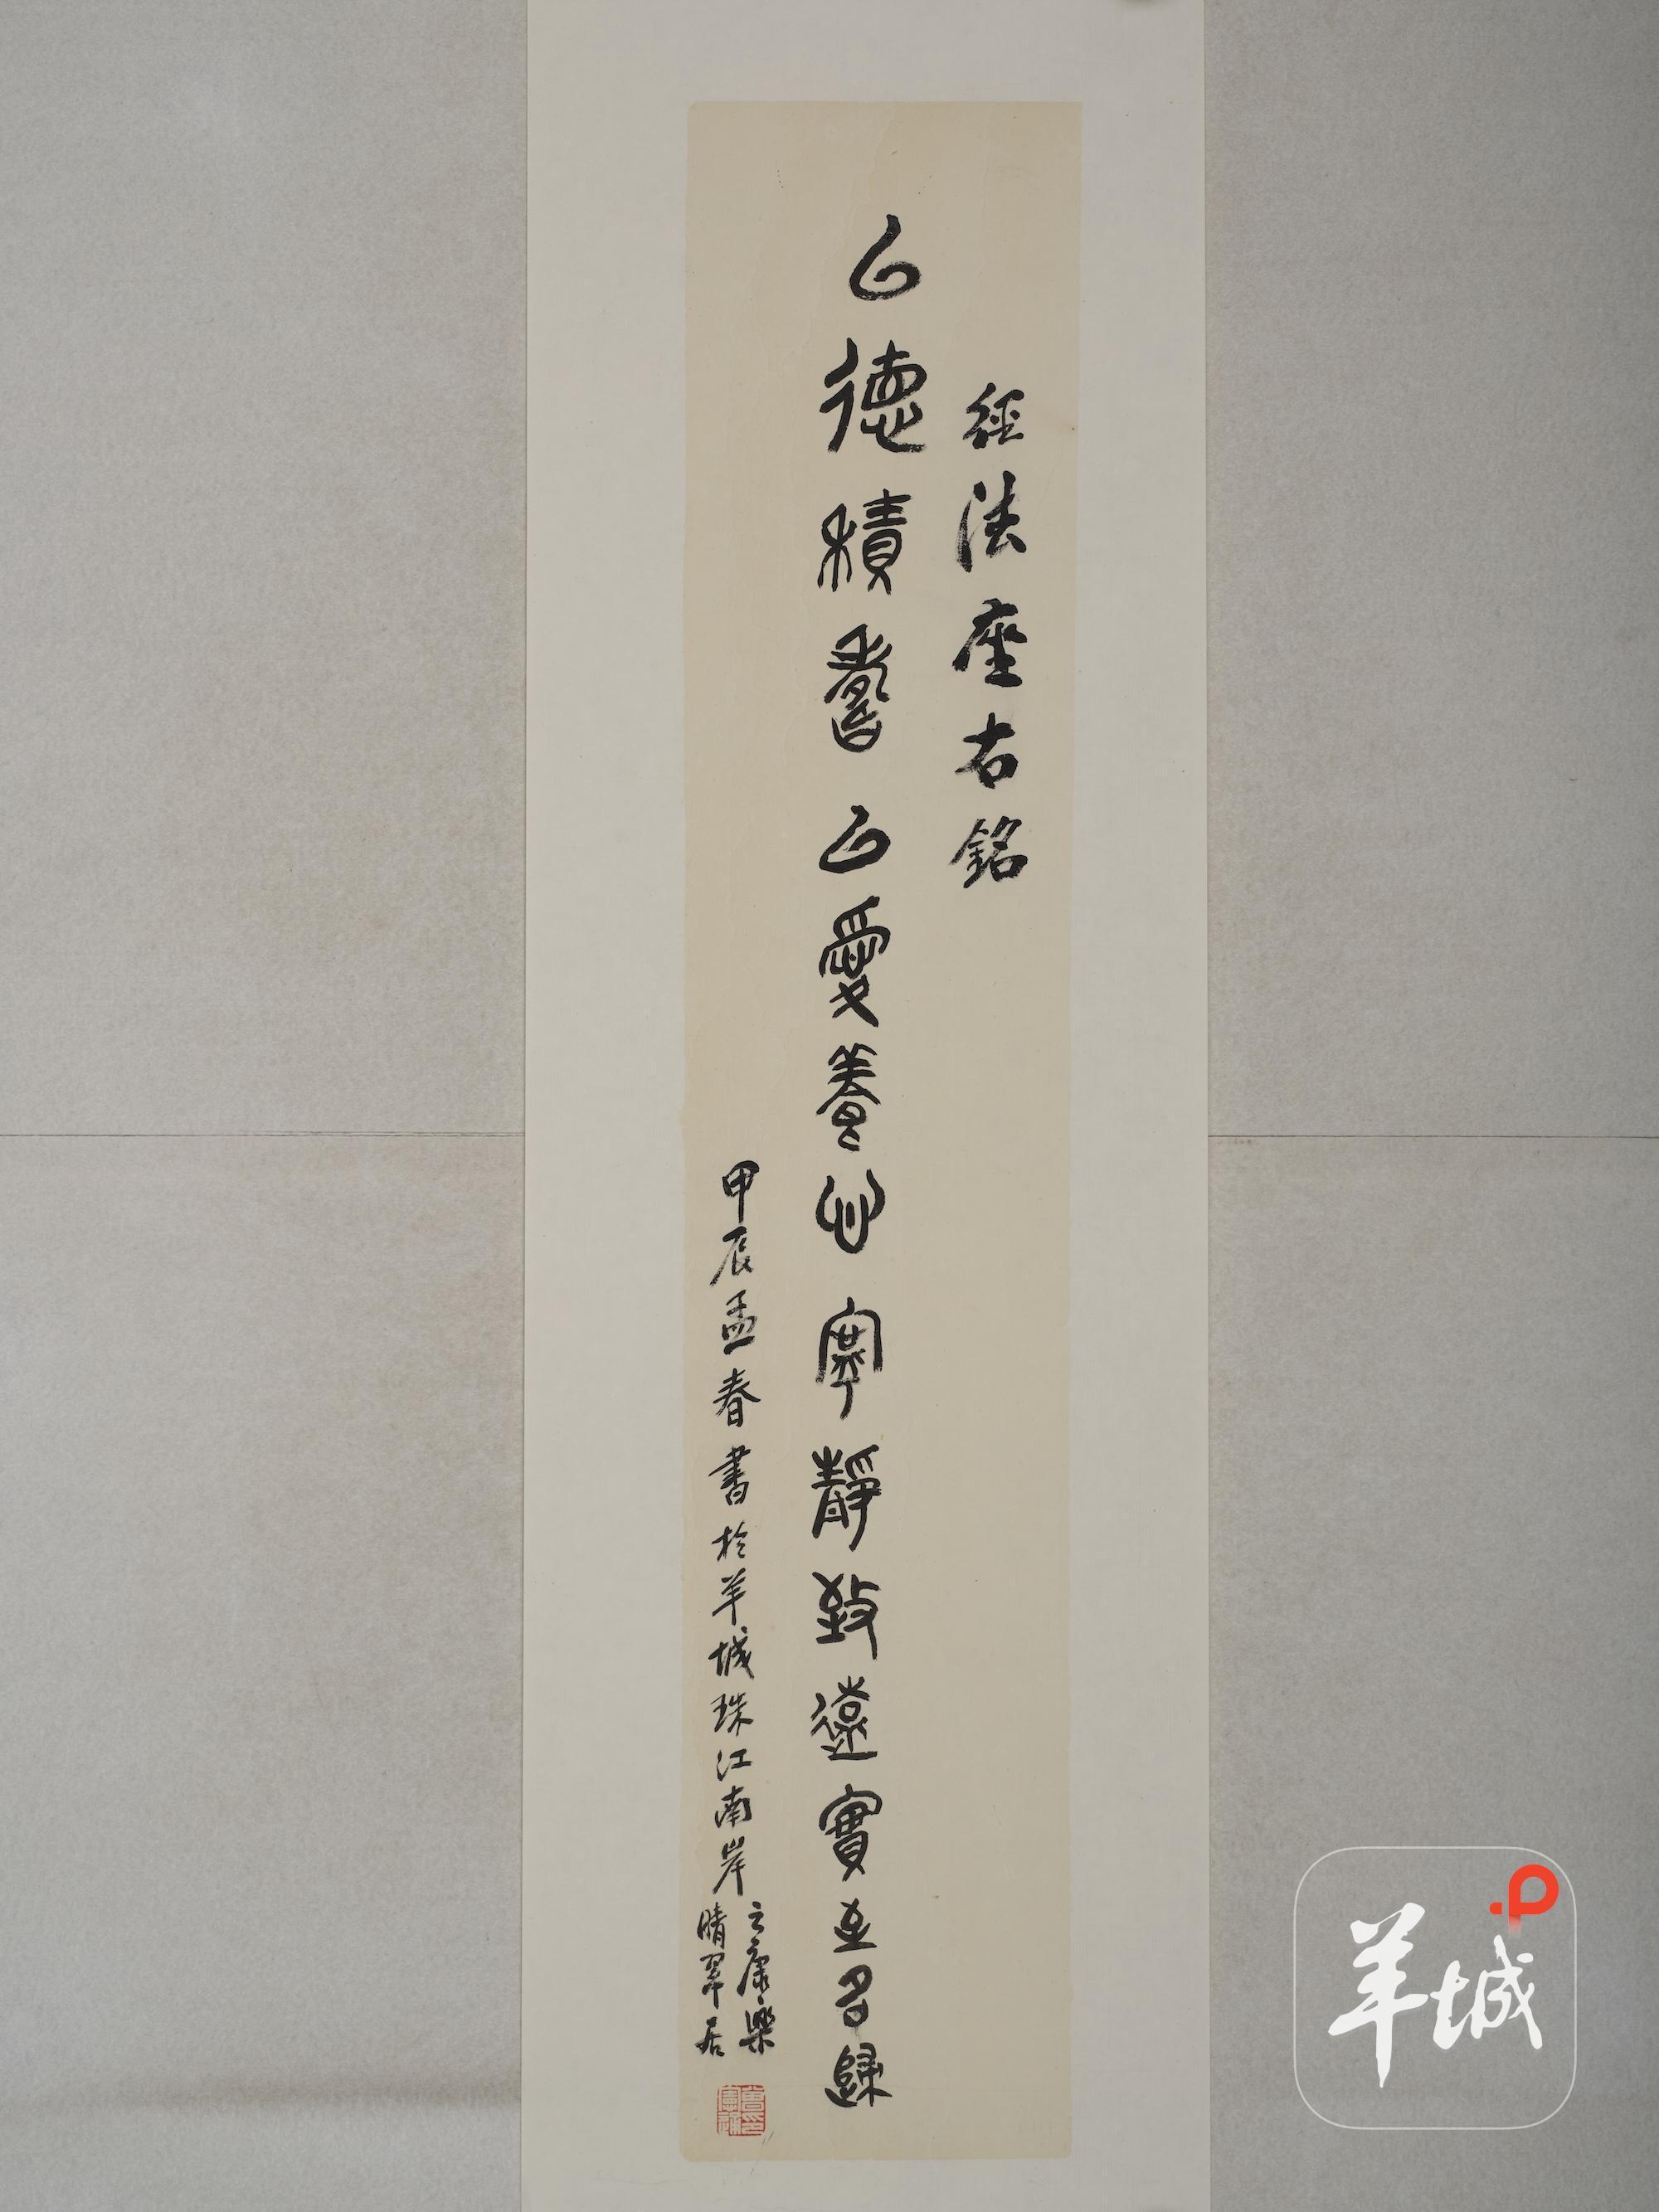 經法座右銘
以德積善以愛養心寧靜致遠實至名歸
甲辰孟春書於羊城珠江南岸
之康樂
晴翠居
羊城